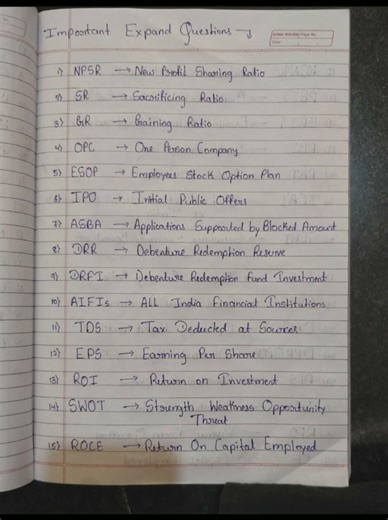 Important Expand Questions →
1) NPSR → New Profit Sharing Ratio
2) SR → Sacrificing Ratio
3) GR → Gaining Ratio
4) OPC → One Person Company
5) ESOP → Employees Stock Option Plan
6) IPO → Initial Public Offers
7) ASBA → Applications Supported by Blocked Amount
8) DRR → Debenture Redemption Reserve
9) DRFI → Debenture Redemption Fund Investment
10) AIFIs → All India Financial Institutions
11) TDS → Tax Deducted at Sources
12) EPS → Earning Per Share
13) ROI → Return on Investment
14) SWOT → Strength Weakness Opportunity
Threat
15) ROCE → Return On Capital Employed